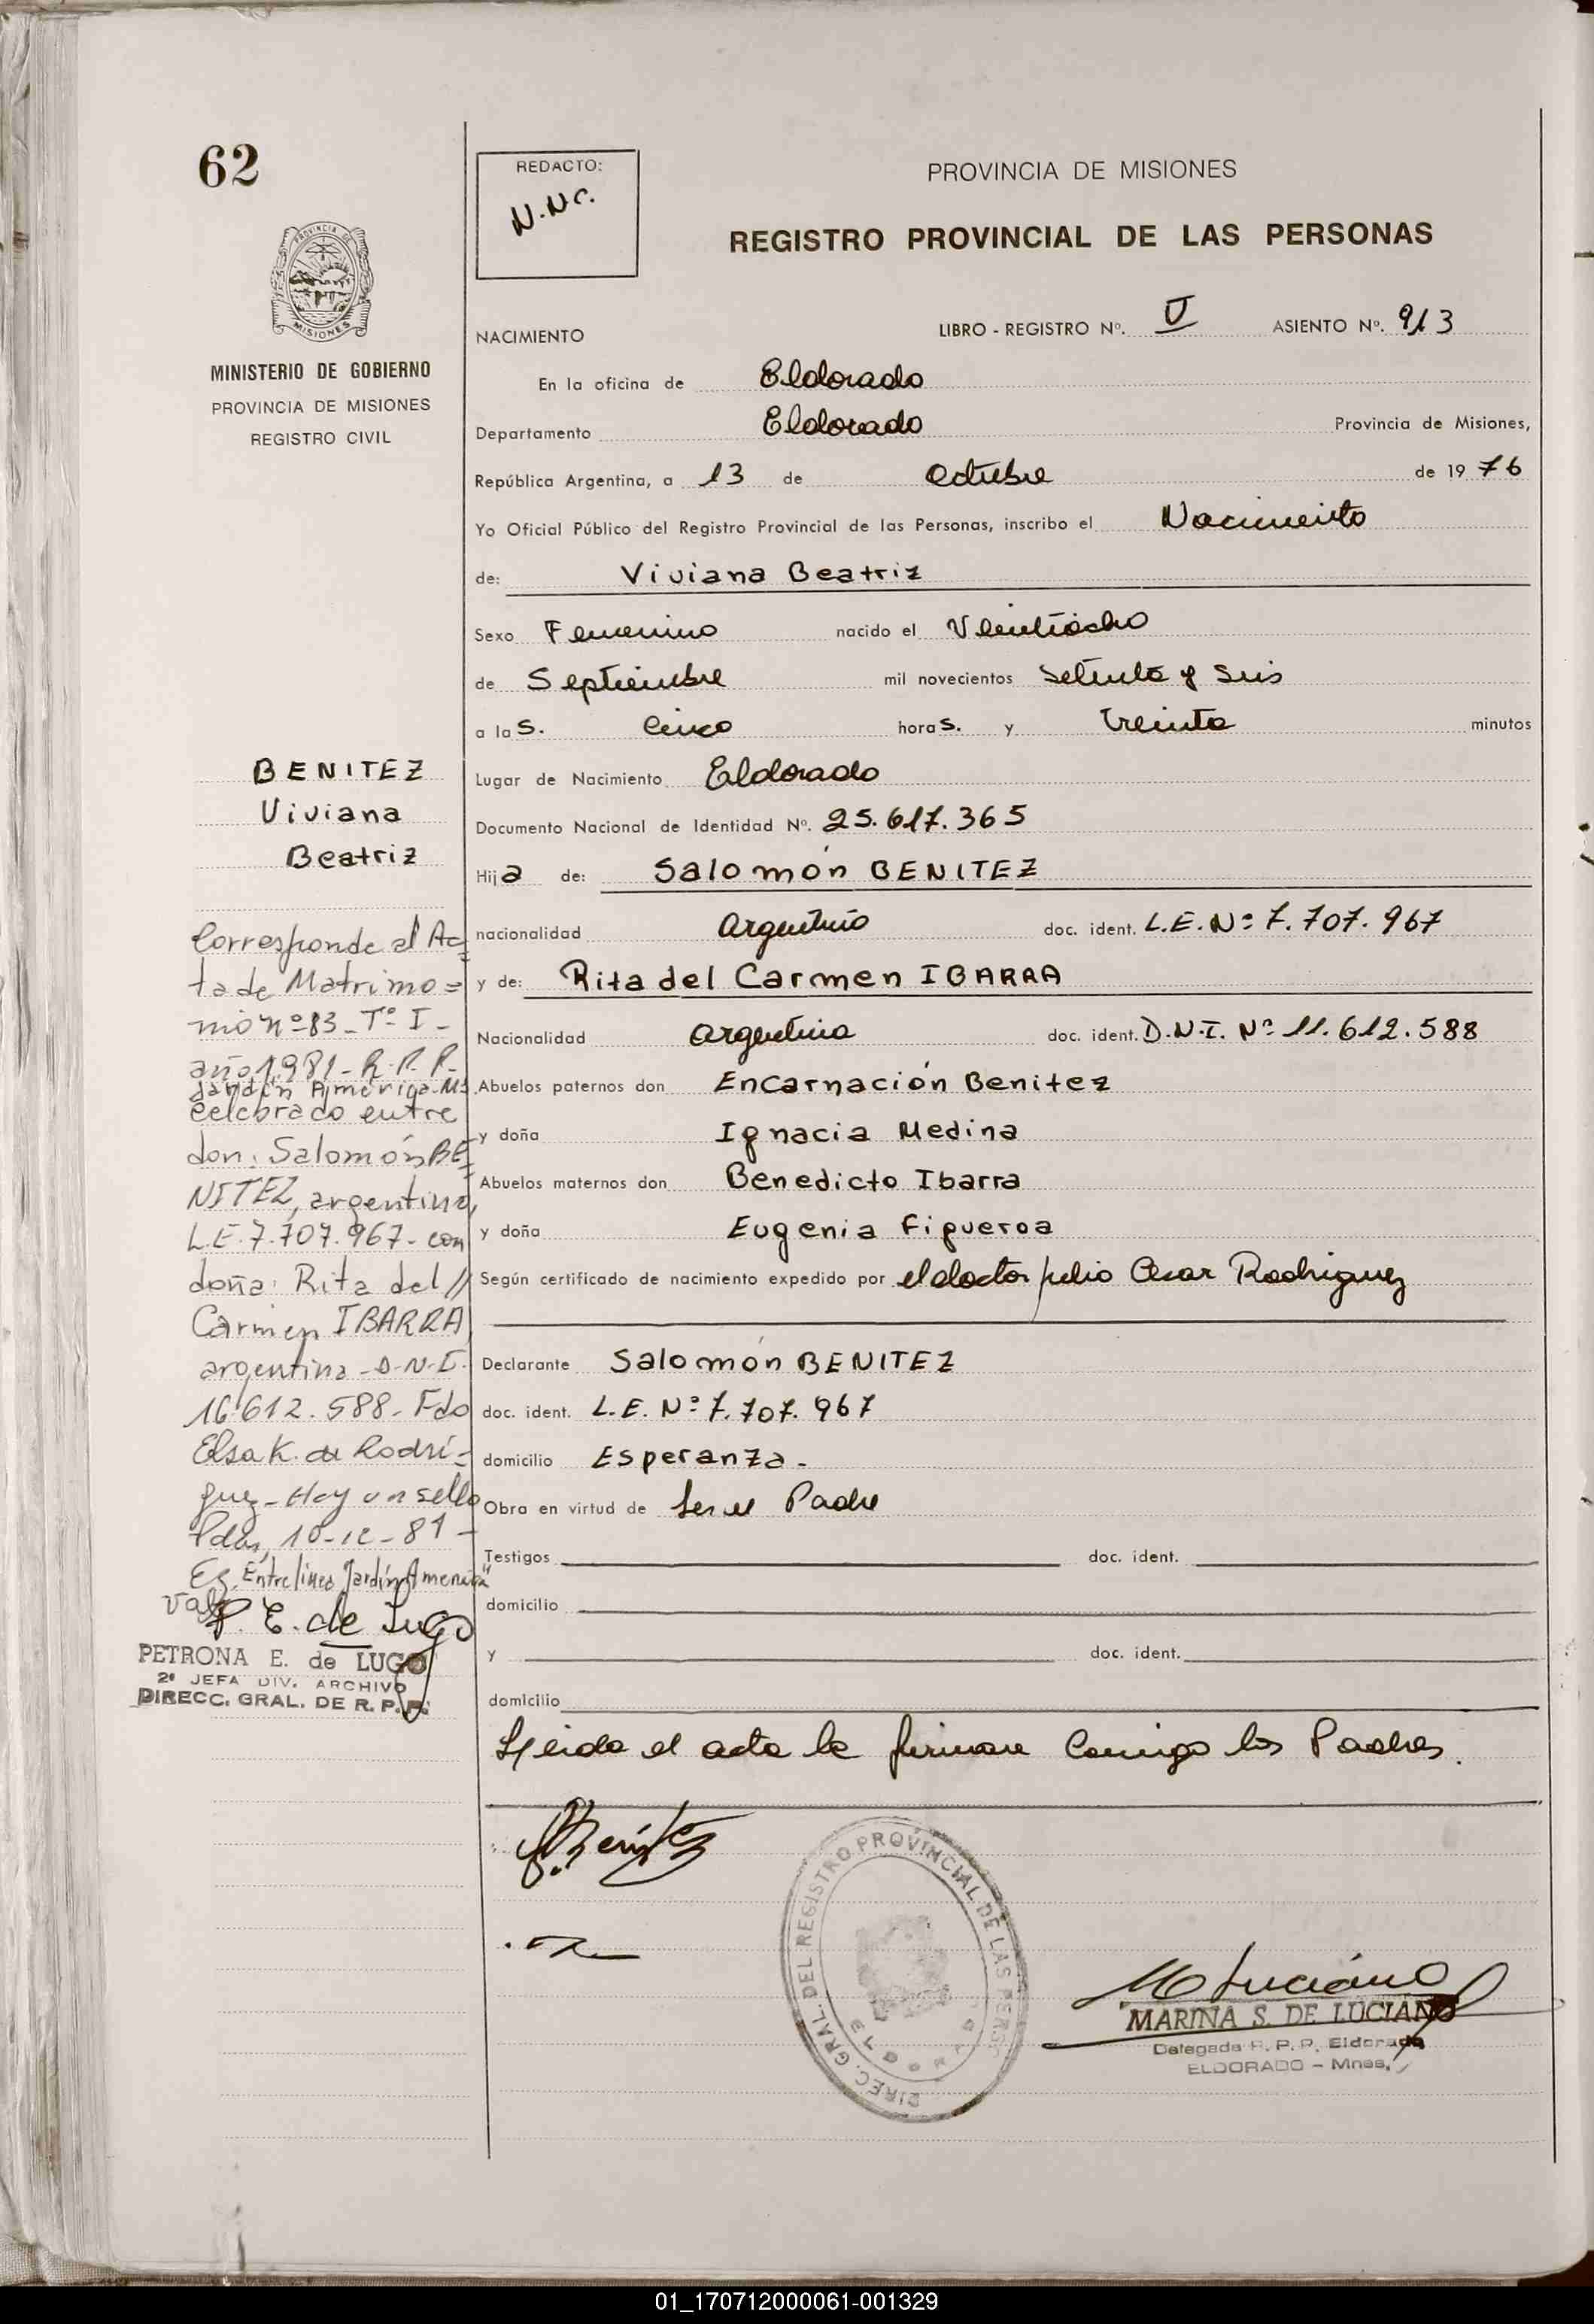 62
REDACTO:
N.N.C.
PROVINCIA DE MISIONES
REGISTRO PROVINCIAL DE LAS PERSONAS
PROVINCIA DE
MISIONES
MINISTERIO DE GOBIERNO
PROVINCIA DE MISIONES
REGISTRO CIVIL
NACIMIENTO
LIBRO - REGISTRO Nº. V ASIENTO Nº. 913
En la oficina de Eldorado
Departamento Eldorado Provincia de Misiones,
República Argentina, a 13 de Octubre de 1976
Yo Oficial Público del Registro Provincial de las Personas, inscribo el Nacimiento
de: Viviana Beatriz
Sexo Femenino nacido el Veintiocho
de Septiembre mil novecientos Setenta y Seis
a las. Cinco horas. y treinta minutos
Lugar de Nacimiento Eldorado
Documento Nacional de Identidad Nº. 25.617.365
Hija de: Salomón BENITEZ
nacionalidad argentino doc. ident. L.E. Nº 7.707.967
y de: Rita del Carmen IBARRA
Nacionalidad argentina doc. ident. D.N.I. Nº 11.612.588
Abuelos paternos don Encarnación Benitez
y doña Ignacia Medina
Abuelos maternos don Benedicto Ibarra
y doña Eugenia Figueroa
Según certificado de nacimiento expedido por el doctor Julio Cesar Rodriguez
Declarante Salomón BENITEZ
doc. ident. L.E. Nº 7.707.967
domicilio Esperanza -
Obra en virtud de Ser el Padre
Testigos doc. ident.
domicilio
y doc. ident.
domicilio
Leida el acta la firman Conmigo los Padres.
BENITEZ
Viviana
Beatriz
Corresponde al Ac=
ta de Matrimo=
nio nº 83 - Tº I -
año 1981 - R.P.P.
Jardín América - Ms
celebrado entre
don: Salomón BE=
NITEZ, argentino,
L.E. 7.707.967 - con
doña: Rita del //
Carmen IBARRA
argentina - D.N.I.
16.612.588 - Fdo
Elsa K. de Rodrí=
guez - Hay un sello
Pdas, 10-12-81 -
Entrelineo Jardín América"
Vale
P. E. de Lugo
PETRONA E. de LUGO
2º JEFA DIV. ARCHIVO
DIRECC. GRAL. DE R. P. P.
Benitez
DIREC. GRAL. DEL REGISTRO PROVINCIAL DE LAS PERS
ELDORADO
M Luciano
MARINA S. DE LUCIANO
Delegada R. P. P. Eldorado
ELDORADO - Mnes.
01_170712000061-001329